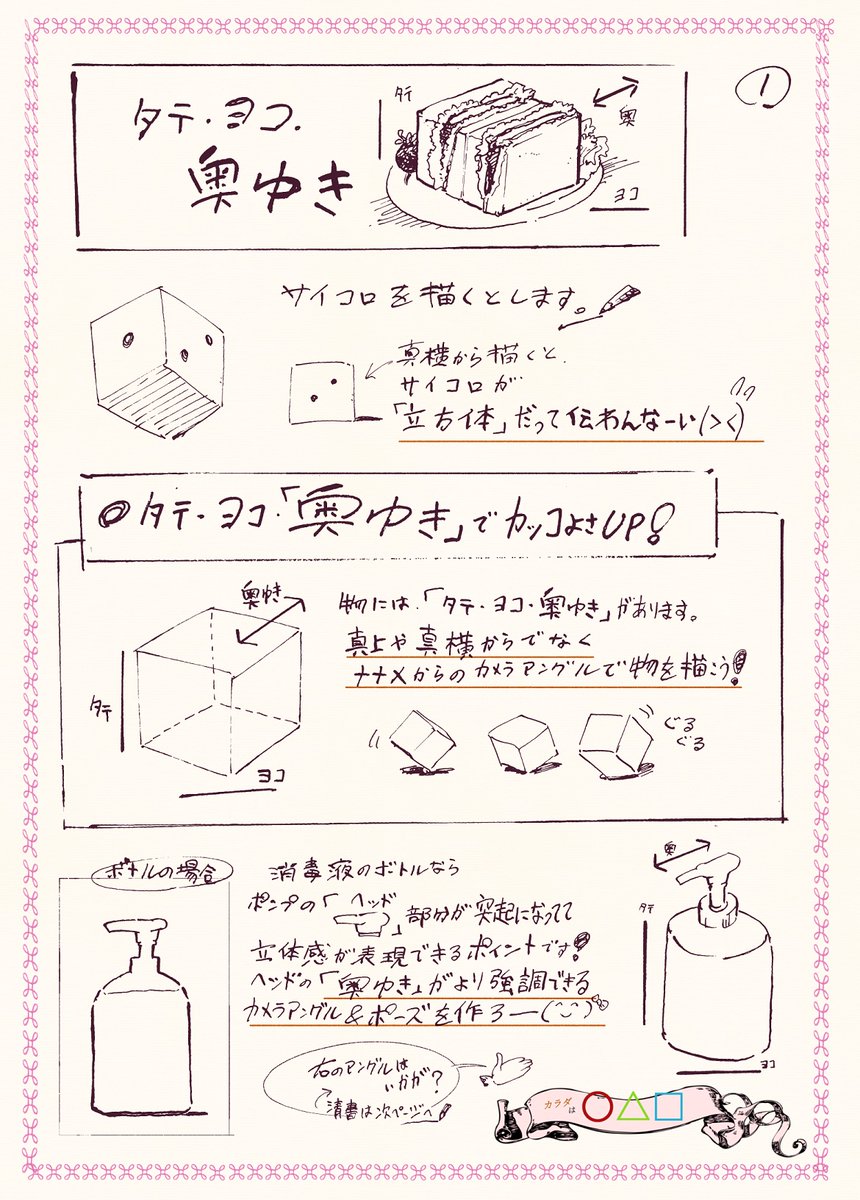 ①
タテ・ヨコ・
奥ゆき
タテ
奥
ヨコ
サイコロを描くとします。
真横から描くと、
サイコロが
「立方体」だって伝わんなーい(><)
◎タテ・ヨコ・「奥ゆき」でカッコよさUP!
奥ゆき
タテ
ヨコ
物には、「タテ・ヨコ・奥ゆき」があります。
真上や真横からでなく
ナナメからのカメラアングルで物を描こう!
ぐる
ぐる
ボトルの場合
消毒液のボトルなら
ポンプの「ヘッド」部分が突起になってて
立体感が表現できるポイントです!
ヘッドの「奥ゆき」がより強調できる
カメラアングル&ポーズを作ろー
奥
タテ
ヨコ
右のアングルは
いかが?
清書は次ページへ!
カラダは○△□